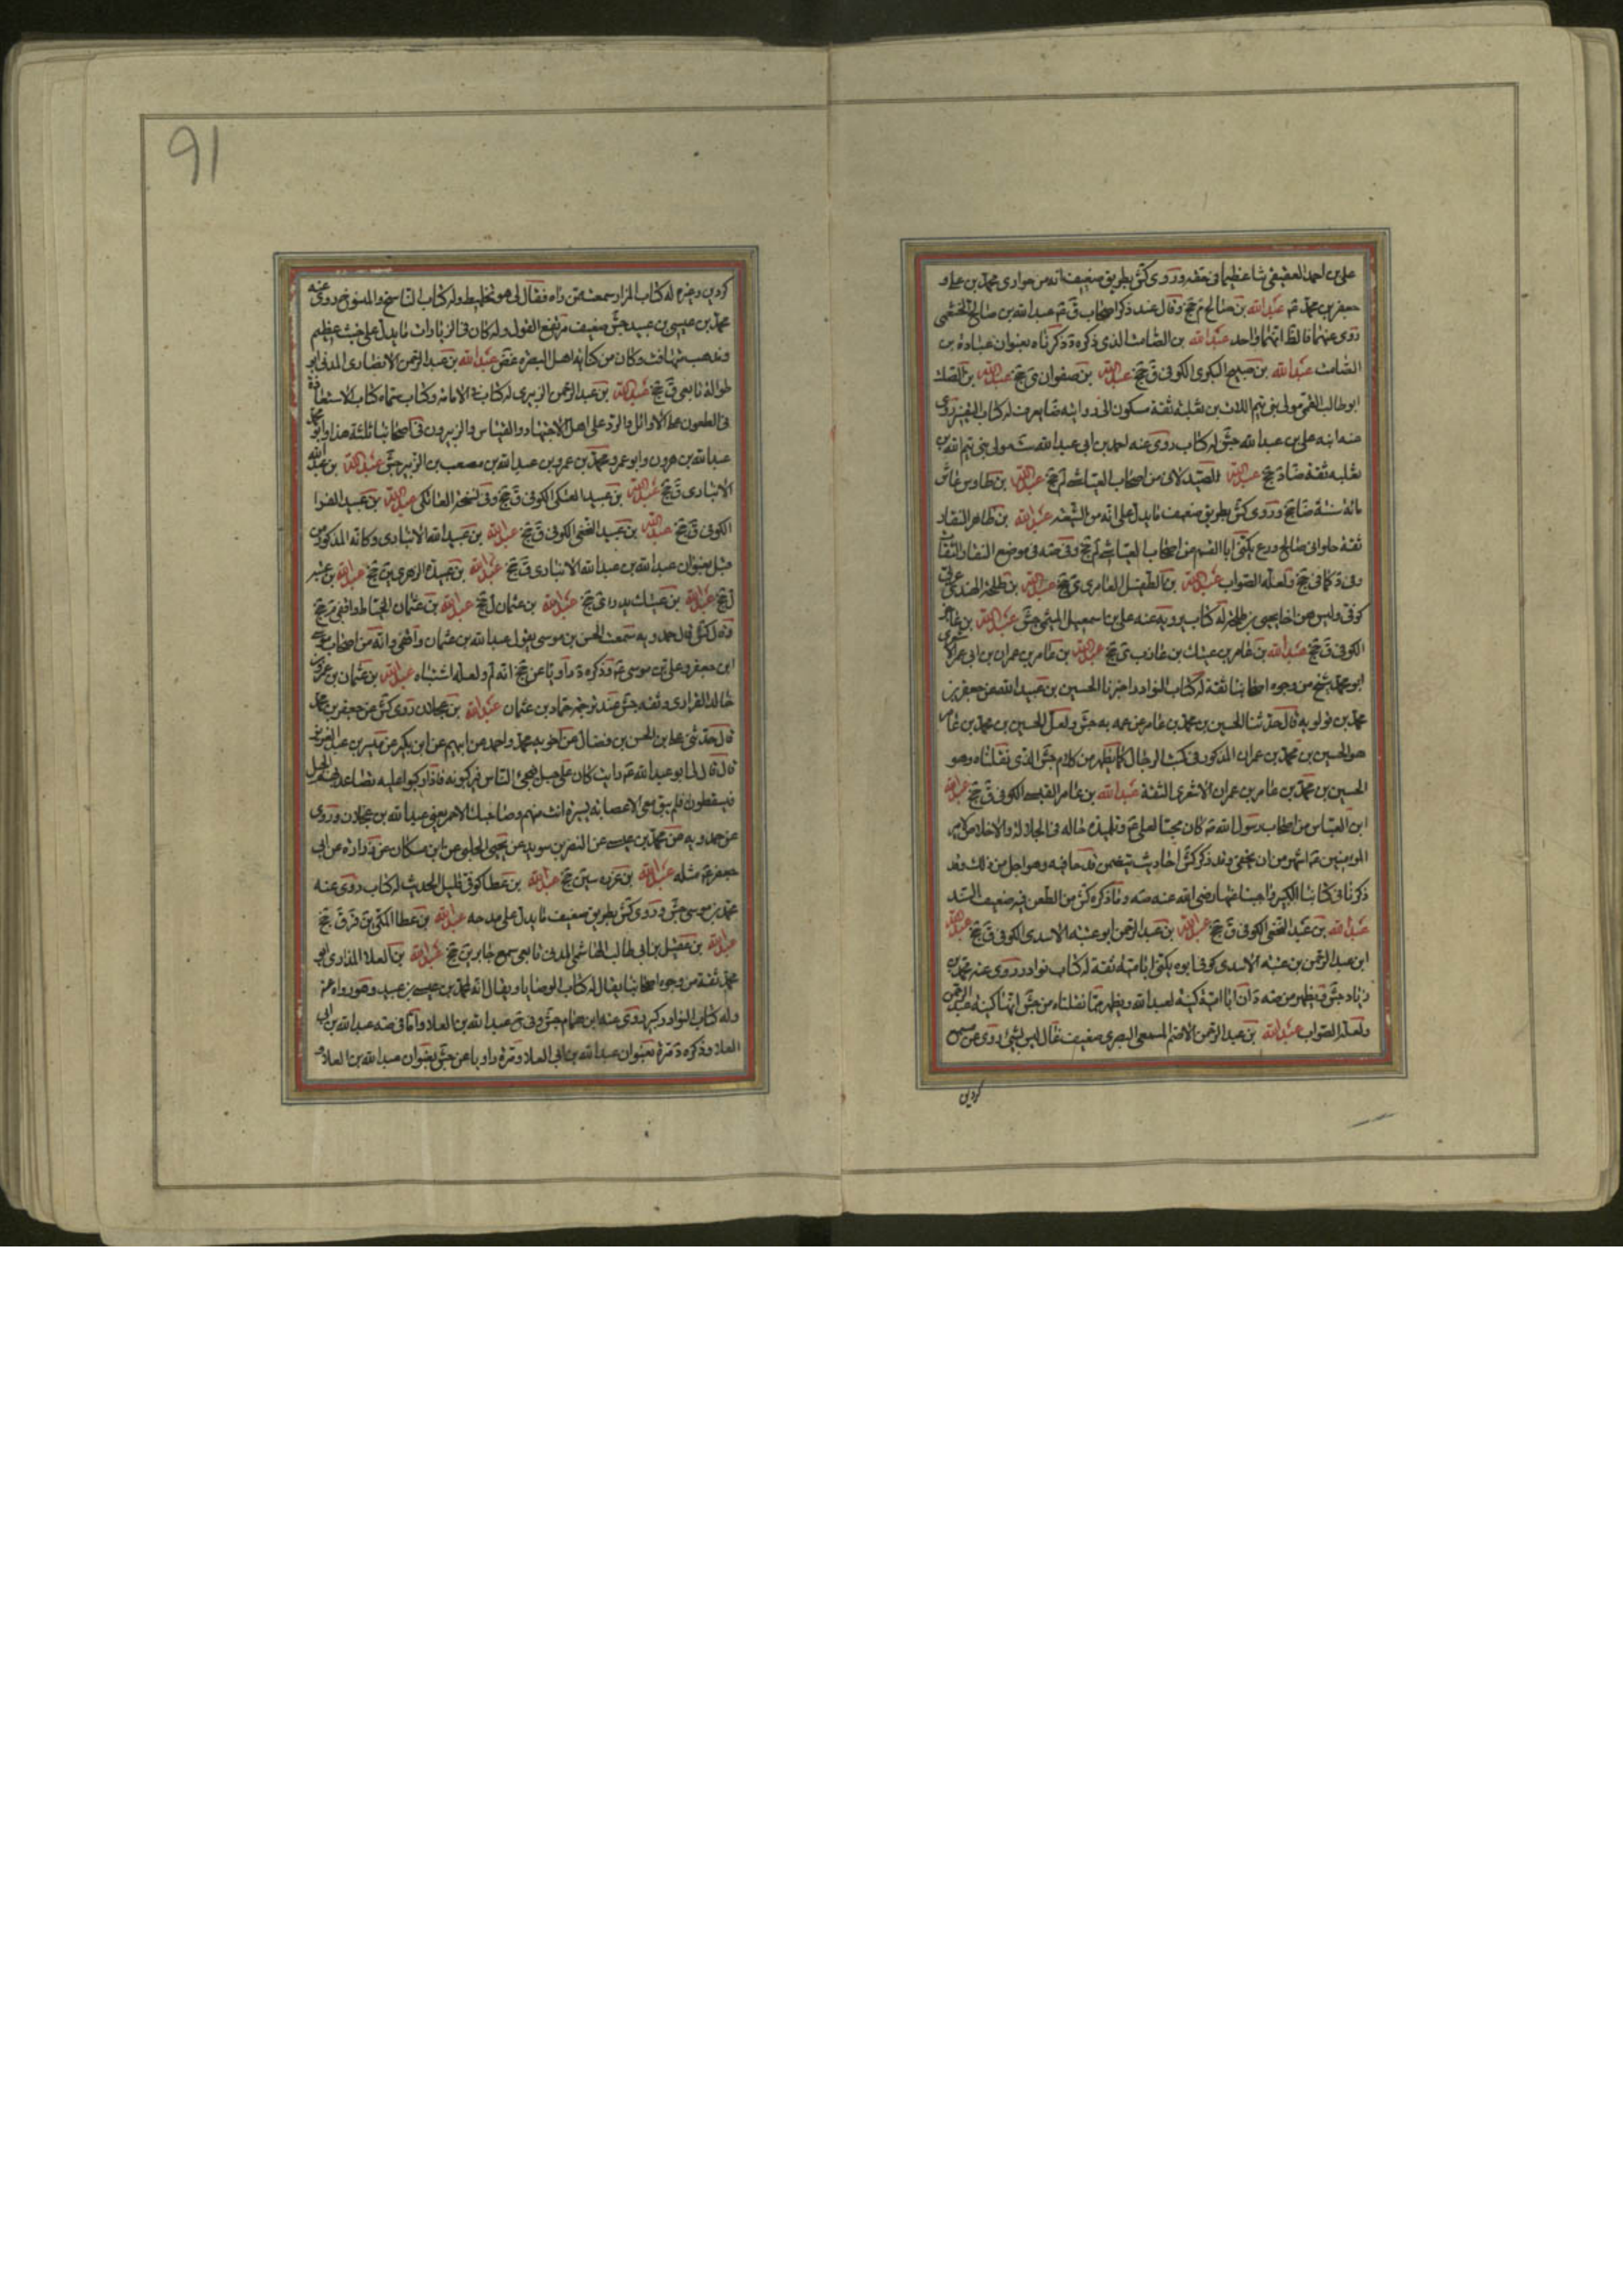 علي بن احمد العقيقي شيا عظيما في حقه وروى كش بطريق ضعيف انه من حواري محمد بن علي و
جعفر بن محمد عم عبد الله بن صالح م جخ وقال عند ذكر اصحاب ق عم عبد الله بن صالح الخثعمي
روى عنهما فالظ انهما واحد عبد الله بن الصامت الذي ذكره د ذكرناه بعنوان عبادة بن
الصامت عبد الله بن صبيح البكري الكوفي ق جخ عبد الله بن صفوان ى جخ عبد الله بن الصلت
ابو طالب القمي مولى بني تيم اللات بن ثعلبة ثقة مسكون الى روايته ضا يعرف له كتاب التفسير روى
عنه ابنه علي بن عبد الله جش له كتاب روى عنه احمد بن ابي عبد الله ست مولى بني تيم الله بن
ثعلبة ثقة ضا د جخ عبد الله الصيدلاني من اصحاب العياشي لم جخ عبد الله بن طاوس عاش
مائة سنة ضا جخ وروى كش بطريق ضعيف ما يدل على انه من الشيعة عبد الله بن طاهر النقاد
ثقة حلواني صالح ورع يكنى ابا القسم من اصحاب العياشي لم جخ وفي صه في موضع النقاد النقاب
وفي د كما في جخ ولعله الصواب عبد الله بن الطفيل العامري ى جخ عبد الله بن طلحة النهدي عربي
كوفي وليس هو اخا يحيى بن طلحة له كتاب يرويه عنه علي بن اسمعيل الميثمي جش عبد الله بن عامر
الكوفي ق جخ عبد الله بن عامر بن عتيك بن عازب ى جخ عبد الله بن عامر بن عمران بن ابي عمر الاشعري
ابو محمد شيخ من وجوه اصحابنا ثقة له كتاب النوادر اخبرنا الحسين بن عبيد الله عن جعفر بن
محمد بن قولويه قال حدثنا الحسين بن محمد بن عامر عن عمه به جش ولعل الحسين بن محمد بن عامر
هو الحسين بن محمد بن عمران المذكور في كتب الرجال كما يظهر من كلام جش الذي نقلناه وهو
الحسين بن محمد بن عامر بن عمران الاشعري الثقة عبد الله بن عامر القيسي الكوفي ق جخ عبد الله
ابن العباس من اصحاب رسول الله ص كان محبا لعلي عم وتلميذه حاله في الجلالة والاخلاص لامير
المؤمنين عم اشهر من ان يخفى وقد ذكر كش احاديث تتضمن قدحا فيه وهو اجل من ذلك وقد
ذكرنا في كتابنا الكبير واجبنا عنها رضي الله عنه صه وما ذكره كش من الطعن فيه ضعيف السند
عبد الله بن عبد النخعي الكوفي ق جخ عبد الله بن عبد الرحمن ابو عتيبة الاسدي الكوفي ق جخ عبد الله
ابن عبد الرحمن بن عتيبة الاسدي كوفي ابوه يكنى ابا امية ثقة له كتاب نوادر روى عنه محمد بن
زياد جش ويظهر من صه د ان ابا امية كنية لعبد الله ويظهر مما نقلناه من جش انها كنية عبد الرحمن
ولعله الصواب عبد الله بن عبد الرحمن الاصم المسمعي البصري ضعيف غال ليس بشيء روى عن مسمع
كردين
91
كردين وغيره له كتاب المزار سمعت ممن راه فقال لي هو تخليط وله كتاب الناسخ والمنسوخ روى عنه
محمد بن عيسى بن عبيد جش ضعيف مرتفع القول وله كتاب في الزيارات ما يدل على خبث عظيم
ومذهب متهافت وكان من كذابة اهل البصرة غض عبد الله بن عبد الرحمن الانصاري المدني ابو
طوالة تابعي ق جخ عبد الله بن عبد الرحمن الزبيري له كتاب في الامامة وكتاب سماه كتاب الاستفادة
في الطعون على الاوائل والرد على اهل الاجتهاد والقياس والزبيرون في اصحابنا ثلثة هذا وابو محمد
عبد الله بن هرون وابو عمرو محمد بن عمرو بن عبد الله بن مصعب بن الزبير جش عبد الله بن عبد الله
الانباري ق جخ عبد الله بن عبيد العتكي الكوفي ق جخ وفي نسخة العائكي عبد الله بن عبيد الفرا
الكوفي ق جخ عبد الله بن عبيد الضبي الكوفي ق جخ عبد الله بن عبيد الله الانباري وكانه المذكور من
قبل بعنوان عبد الله بن عبد الله الانباري ق جخ عبد الله بن عبيدة الزهري ين جخ عبد الله بن عتبة
ل جخ عبد الله بن عتيك بدري ى جخ عبد الله بن عثمان ل جخ عبد الله بن عثمان الخياط واقفي م جخ
وقال كش قال حمدويه سمعت الحسن بن موسى يقول عبد الله بن عثمان واقفي وانه من اصحاب موسى
ابن جعفر وعلي بن موسى عم وذكره د راويا عن جخ انه لم ولعله اشتباه عبد الله بن عثمان بن عمرو بن
خالد الفزاري وثقه جش عند ترجمة حماد بن عثمان عبد الله بن عجلان روى كش عن جعفر بن محمد
قال حدثني علي بن الحسن بن فضال عن اخويه محمد واحمد عن ابيهم عن ابن بكير عن ميسر بن عبد العزيز
قال قال لي ابو عبد الله عم رايت كان على جبل فيجيء الناس فيركبونه فاذا ركبوا عليه تصاعد بهم الجبل
فيسقطون فلم يبق معي الا عصابة يسيرة انت منهم وصاحبك الاحمر يعني عبد الله بن عجلان وروى
عن حمدويه عن محمد بن عيسى عن النضر بن سويد عن يحيى الحلبي عن ابن مسكان عن زرارة عن ابي
جعفر عم مثله عبد الله بن عزرة سين جخ عبد الله بن عطا كوفي قليل الحديث له كتاب روى عنه
محمد بن موسى جش وروى كش بطريق ضعيف ما يدل على مدحه عبد الله بن عطا المكي ين قر ق جخ
عبد الله بن عقيل بن ابي طالب الهاشمي المدني تابعي سمع جابر ين جخ عبد الله بن العلا المذاري ابو
محمد ثقة من وجوه اصحابنا يقال له كتاب الوصايا ويقال انه لمحمد بن عيسى بن عبيد وهو رواه عنه
وله كتاب النوادر كبير روى عنه ابن همام جش وفي ضح عبد الله بن العلا واما في صه عبد الله بن ابي
العلا وذكره د مرة بعنوان عبد الله بن ابي العلا ومرة راويا عن جش بعنوان عبد الله بن العلا و